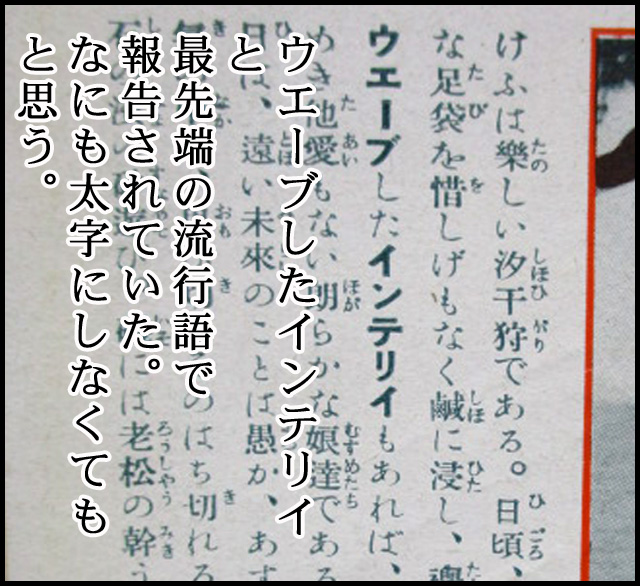 けふは樂しい汐干狩である。日頃、
な足袋を惜しげもなく鹹に浸し、
ウエーブしたインテリイもあれば、
めき他愛もない朗らかな娘達である
日は、遠い未來のことは愚か、あす
のはち切れる
には老松の幹
ウエーブしたインテリイ
と
最先端の流行語で
報告されていた。
なにも太字にしなくても
と思う。